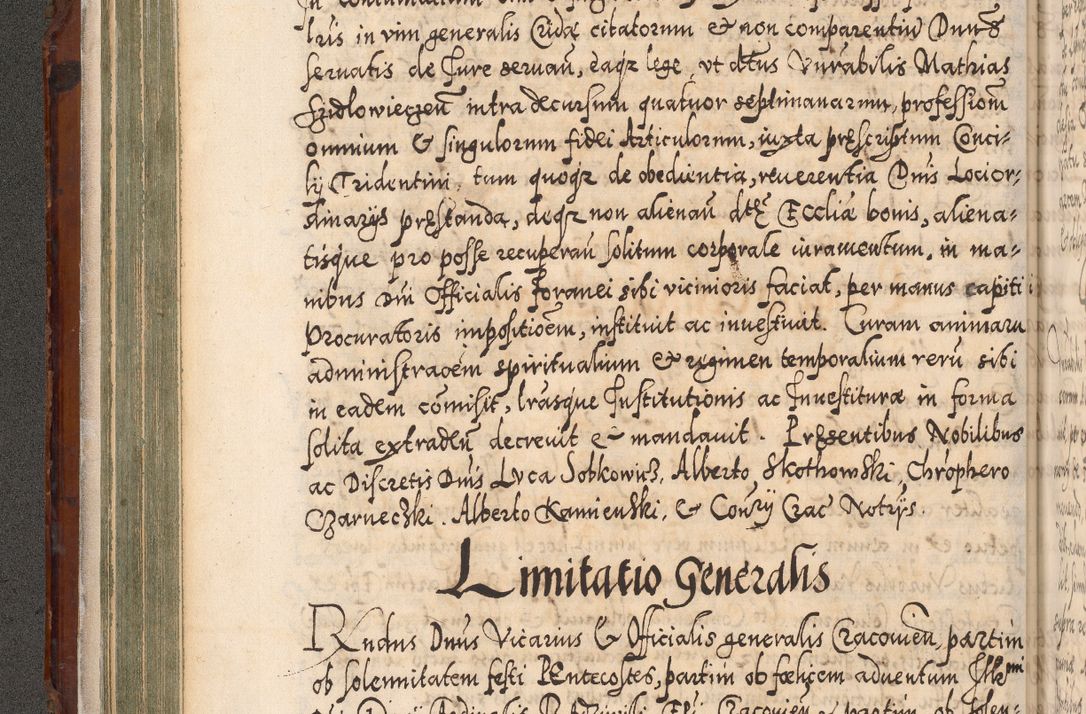 lris in vim generalis Cridæ citatorum & non comparentiũ Dnus
servatis de Jure servan̄, eaq̄ȝ lege, ut dtus Vnrabilis Mathias
Szidlowieczen̄ intra decursum quatuor septimanarum, professionē
omnium & singulorum fidei Articulorum, iuxta præscriptum Conci-
lij Tridentini, tum quoq̄ȝ de obedientia, reverentia Dnis Locior-
dinarijs præstanda, deq̄ȝ non alienan̄ dtæ Eccliæ bonis, aliena-
tisque pro posse recuperan̄ solitum corporale iuramentum, in ma-
nibus Dni Officialis Foranei sibi vicinioris faciat, per manus capiti
Procuratoris impositioēm, instituit ac investivit. Curam animarū
administraōēm spiritualium & regimen temporalium rerū sibi
in eadem com̄isit, lrasque Institutionis ac Investituræ in forma
solita extraden̄ decrevit & mandavit. Præsentibus Nobilibus
ac Discretis Dnis Luca Sobkowicz, Alberto Skothowski, Chrophero
Czarneczki. Alberto Kamienski, & Con̄rij Crac Notrijs.
Limitatio Generalis
Rndus Dnus Vicarius & Officialis generalis Cracovien̄, partim
ob solemnitatem festi Pentecostes, partim ob fœlicem adventum Illmi